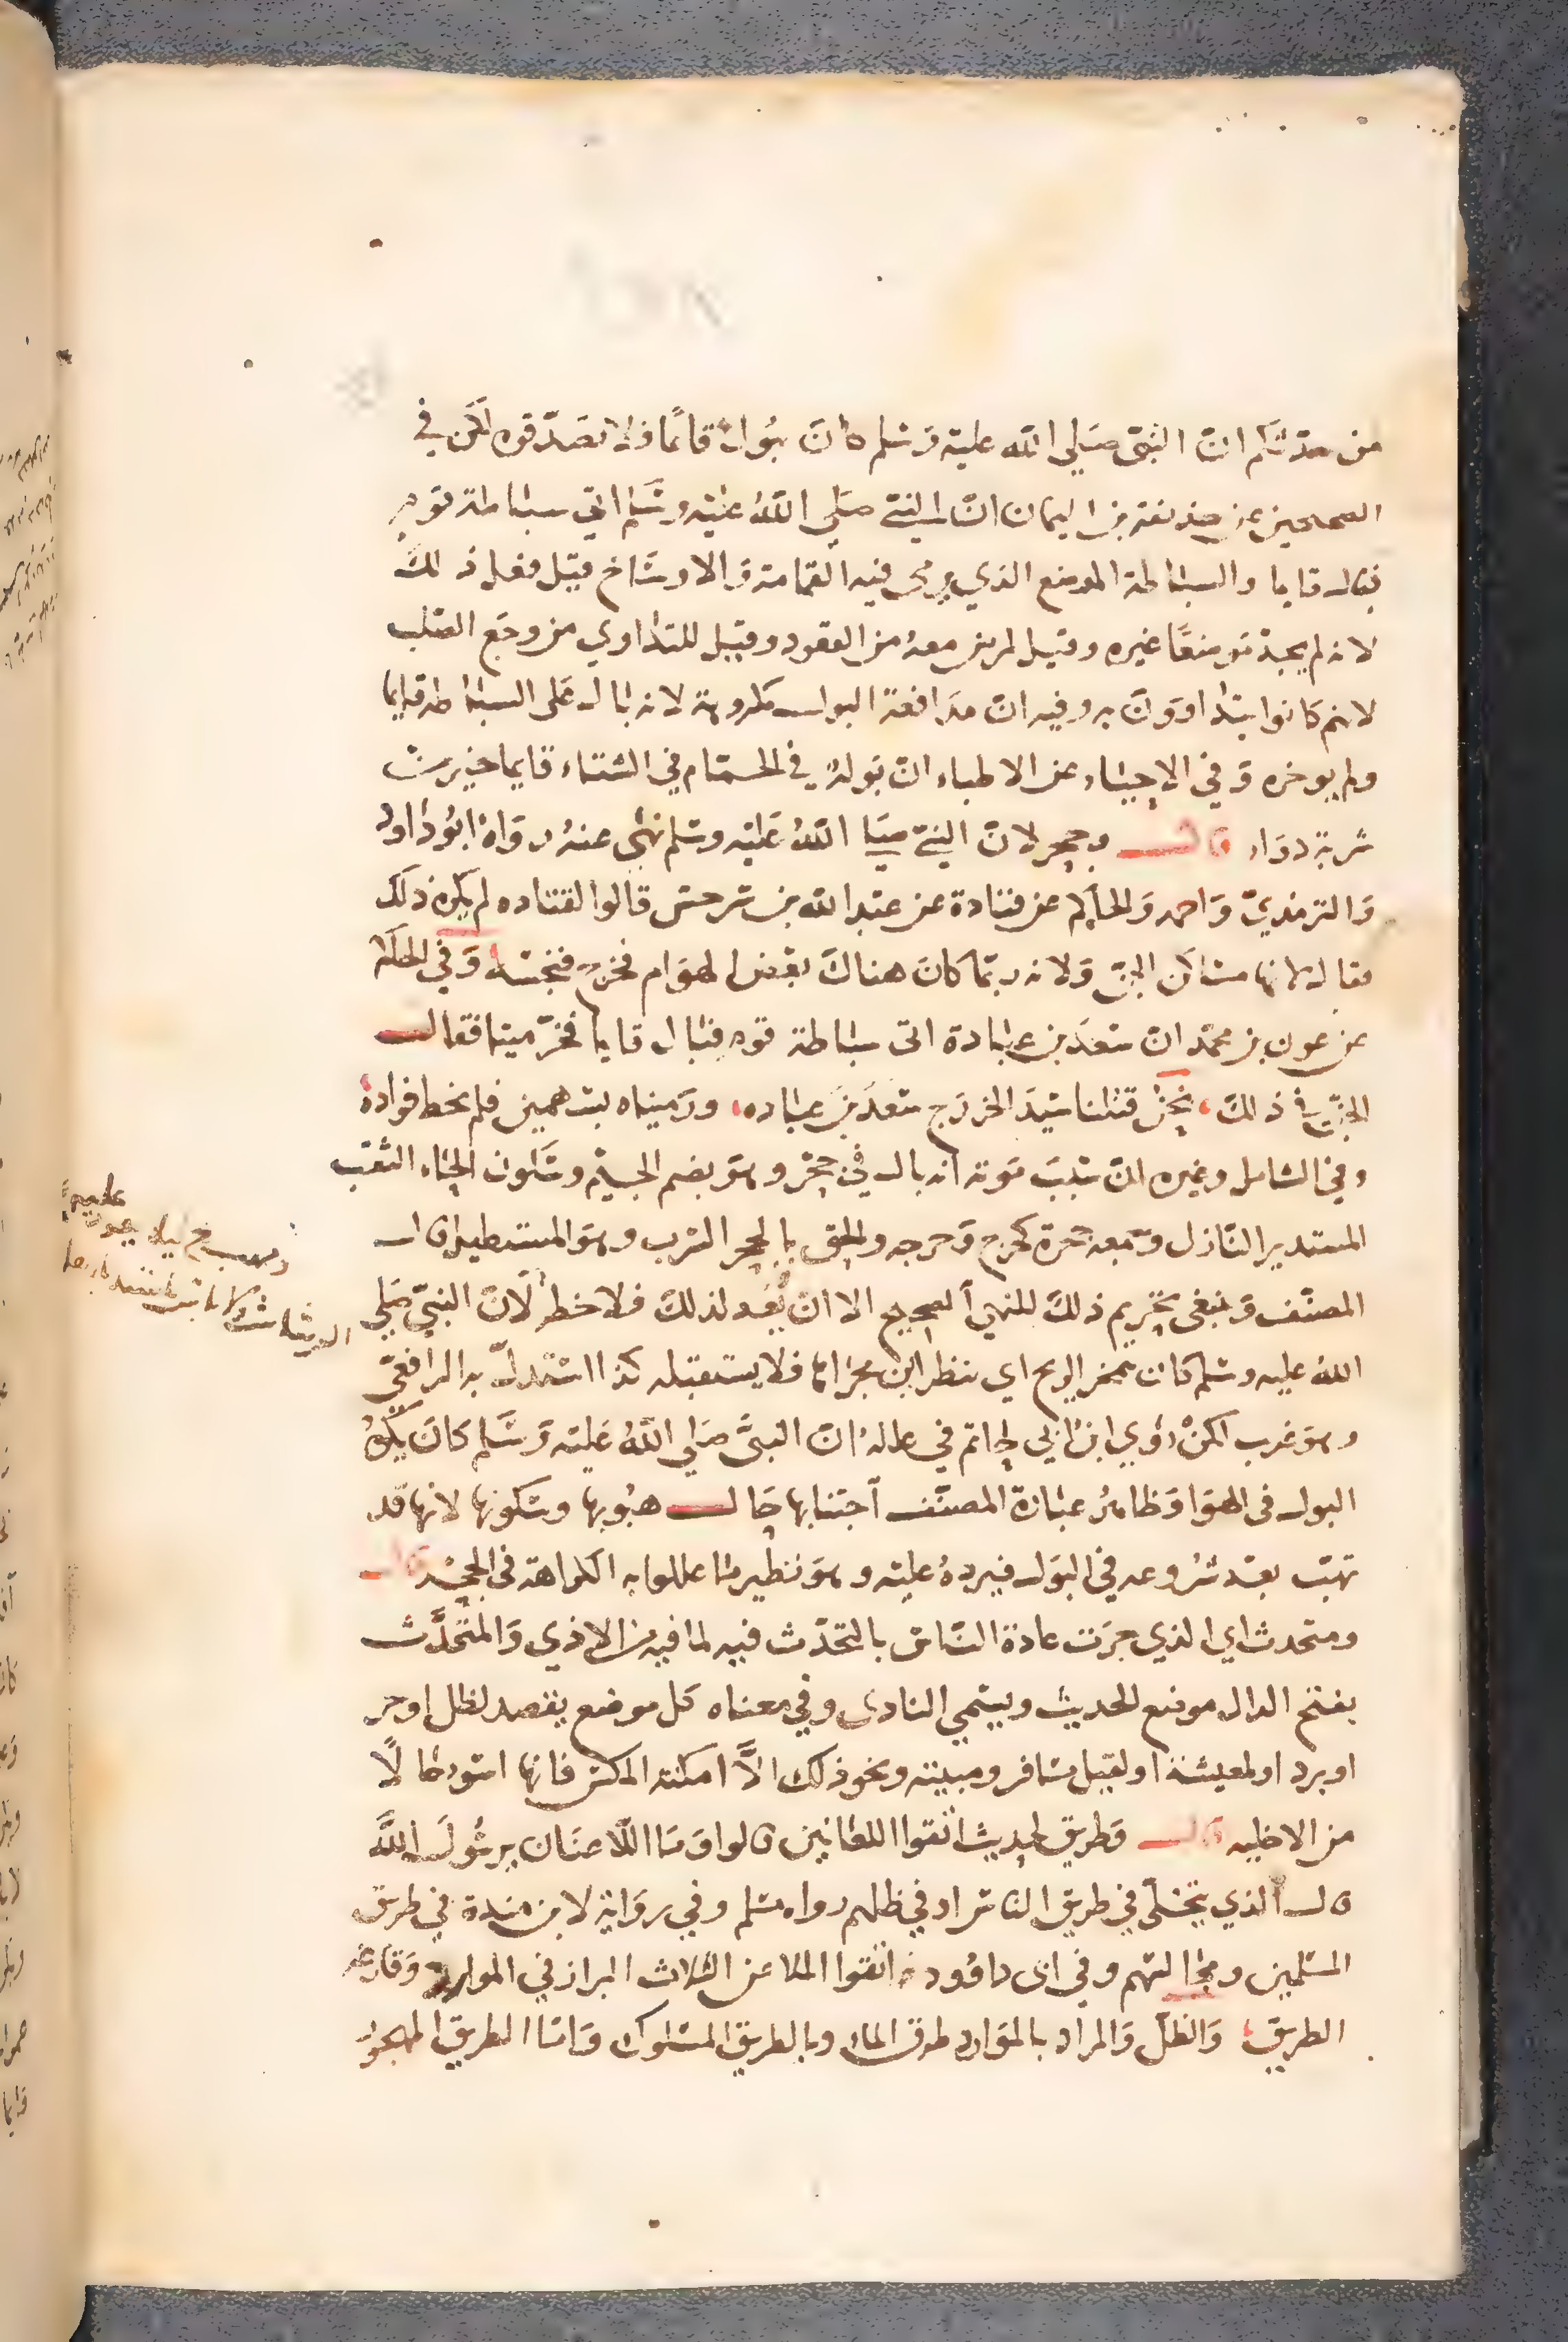 من حدثكم ان النبي صلي الله عليه وسلم كان يبول قائما فلا تصدقوه لكن في
الصحيحين عن حذيفة بن اليمان ان النبي صلي الله عليه وسلم اتي سباطة قوم
فبال قايما والسباطة الموضع الذي يرمى فيه القمامة والاوساخ قيل فعل ذلك
لانه لم يجد موضعا غيره وقيل لمرض معه من القعود وقيل للتداوي من وجع الصلب
لانهم كانوا يتداوون به وفيه ان مدافعة البول مكروهة لانه بال على السباطة قايما
ولم يوخره وفي الاحياء عن الاطباء ان بولة في الحمام في الشتاء قايما خير من
شربة دواء قال وجحر لان النبي صلي الله عليه وسلم نهى عنه رواه ابو داود
والترمذي واحمد والحاكم عن قتادة عن عبد الله بن سرجس قالوا لقتاده لم يكره ذلك
فقال لانها مساكن الجن ولانه ربما كان هناك بعض الهوام فخرج فنجسه وفي الحاكم
عن عون بن محمد ان سعد بن عبادة اتى سباطة قوم فبال قايما فخر ميتا فقال
الجن في ذلك نحن قتلنا سيد الخزرج سعد بن عباده ورميناه بسهمين فلم نخط فواده
وفي الشامل وغيره ان سبب موته انه بال في جحر وهو بضم الجيم وسكون الحاء الثقب
المستدير النازل وجمعه جحرة كحرج وحرجه والحق بالجحر السرب وهو المستطيل قال
المصنف وينبغي تحريم ذلك للنهي الصحيح الا ان يعد لذلك فلا خطر لان النبي صلي
الله عليه وسلم كان يتمخر الريح اي ينظر اين مجراها فلا يستقبله كذا استدل به الرافعي
وهو غريب لكن روي ابن ابي حاتم في علله ان النبي صلي الله عليه وسلم كان يكره
البول في الهوا وظاهر عبارة المصنف اجتنابها حال هبوبها وسكونها لانها قد
تهب بعد شروعه في البول فيرده عليه وهو نظير ما عللوا به الكراهة في الجحر قال
ومتحدث اي الذي جرت عادة الناس بالتحدث فيه لما فيه من الاذي والمتحدث
بفتح الدال موضع الحديث ويسمي النادي وفي معناه كل موضع يقصد لظل او حر
او برد او لمعيشة او لقيل مسافر ومبيته ونحو ذلك الا امكنة المكس فانها اسوء حالا
من الاخليه قال وطريق لحديث اتقوا اللعانين قالوا وما اللاعنان يرسول الله
قال الذي يتخلي في طريق الناس او في ظلهم رواه مسلم وفي رواية لابن مندة في طريق
المسلمين ومجالسهم وفي ابى داوود اتقوا الملاعن الثلاث البراز في الموارد وقارعة
الطريق والظل والمراد بالموارد طرق الماء وبالطريق المسلوك واما الطريق المهجور